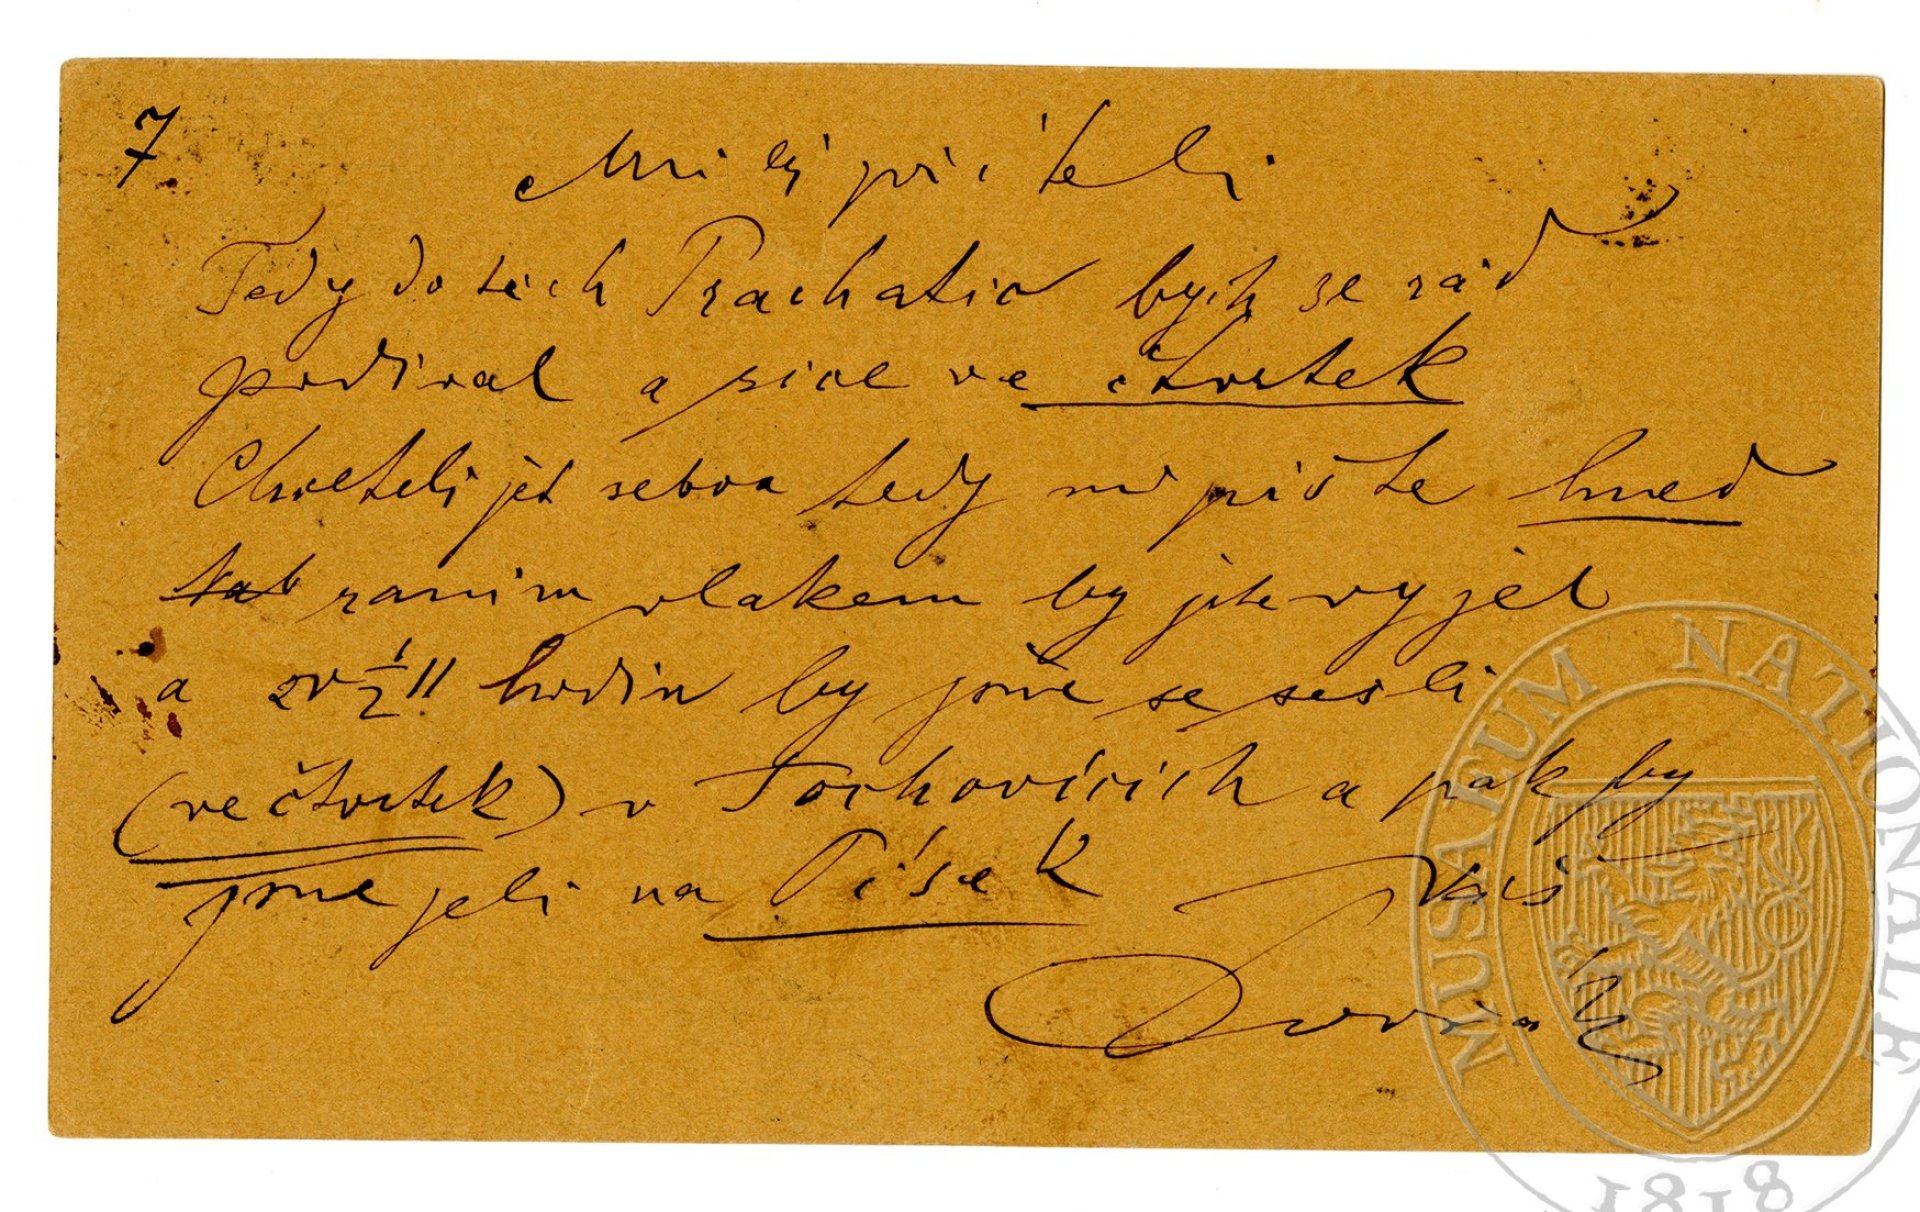 7
Milý příteli
Tedy do těch Prachatic bych se rád
podíval a sice ve čtvrtek
Chceteli jet sebou tedy mi pište hned
ranim vlakem by jste vyjel
a v ½ 11 hodin by jsme se sešli
(ve čtvrtek) v Tochovicich a pak by
jsme jeli na Písek Váš
Dvořák
MUSAEUM NATIONALE
1818